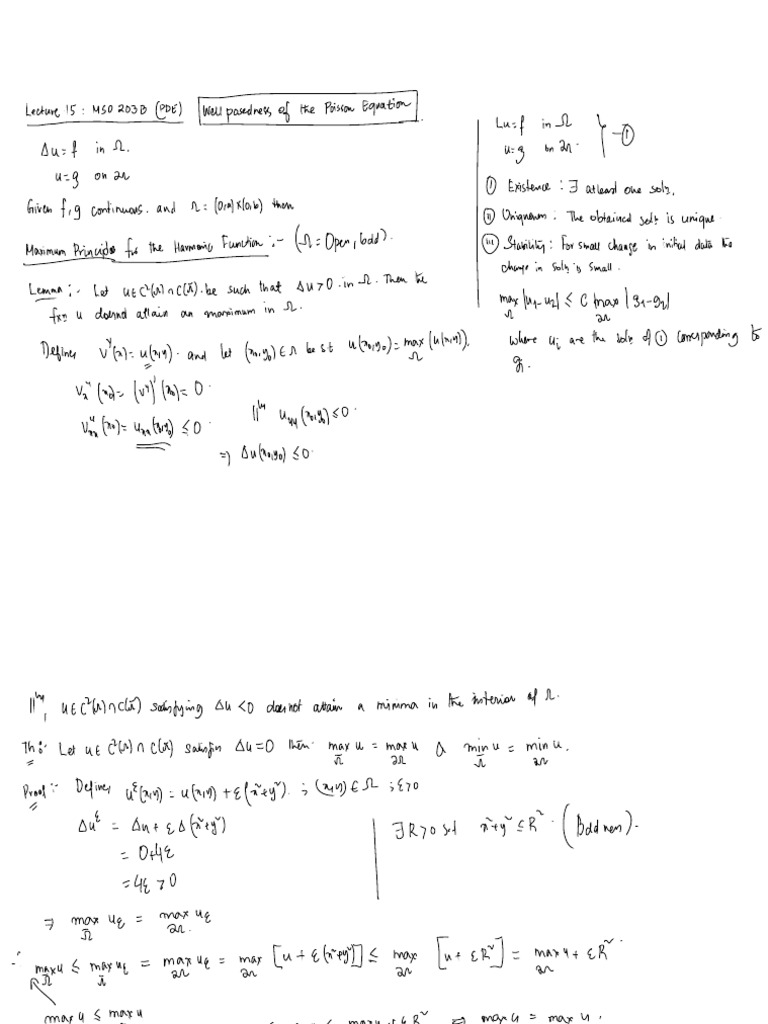 Lecture 15 : MSO 203B (PDE) Well posedness of the Poisson Equation.
Δu = f in Ω.
u = g on ∂Ω
Given f, g continuous. and Ω = (0,a)×(0,b) then
Maximum Principle for the Harmonic Function :- (Ω = Open, bdd).
Lemma :- Let u∈C²(Ω)∩C(Ω̄). be such that Δu>0. in Ω. Then the
fxn u doesnot attain an maximum in Ω.
Define, Vʸ(x) = u(x,y). and let (x₀,y₀)∈Ω be s.t u(x₀,y₀) = max_Ω (u(x,y)).
(x₀) = (Vʸ)'(x₀) = 0.
(x₀) = uₓₓ(x₀,y₀) ≤ 0.
||ly u_yy(x₀,y₀) ≤ 0.
⇒ Δu(x₀,y₀) ≤ 0.
Lu = f in Ω
u = g on ∂Ω } —①
ⓘ Existence : ∃ atleast one soln.
ⓘⓘ Uniqueness : The obtained soln is unique.
ⓘⓘⓘ Stability : For small change in initial data the
change in soln is small.
max_Ω |u₁-u₂| ≤ C max_∂Ω |g₁-g₂|
where uᵢ are the soln of ① corresponding to
gᵢ.
||ly, u∈C²(Ω)∩C(Ω̄) satisfying Δu<0 doesnot attain a minima in the interior of Ω.
Th :- Let u∈C²(Ω)∩C(Ω̄) satisfies Δu=0 then max_Ω̄ u = max_∂Ω u & min_Ω̄ u = min_∂Ω u.
Proof :- Define, uᵋ(x,y) = u(x,y) + ε(x²+y²). ; (x,y)∈Ω ; ε>0
Δuᵋ = Δu + εΔ(x²+y²)
= 0+4ε
= 4ε > 0
∃ R>0 s.t x²+y² ≤ R². (Bddness).
⇒ max_Ω̄ u_ε = max_∂Ω u_ε
∴ max_Ω̄ u ≤ max_Ω̄ u_ε = max_∂Ω u_ε = max_∂Ω [u + ε(x²+y²)] ≤ max_∂Ω [u + εR²] = max_∂Ω u + εR².
max u ≤ max u
u + εR² ⇔ max u = max u.